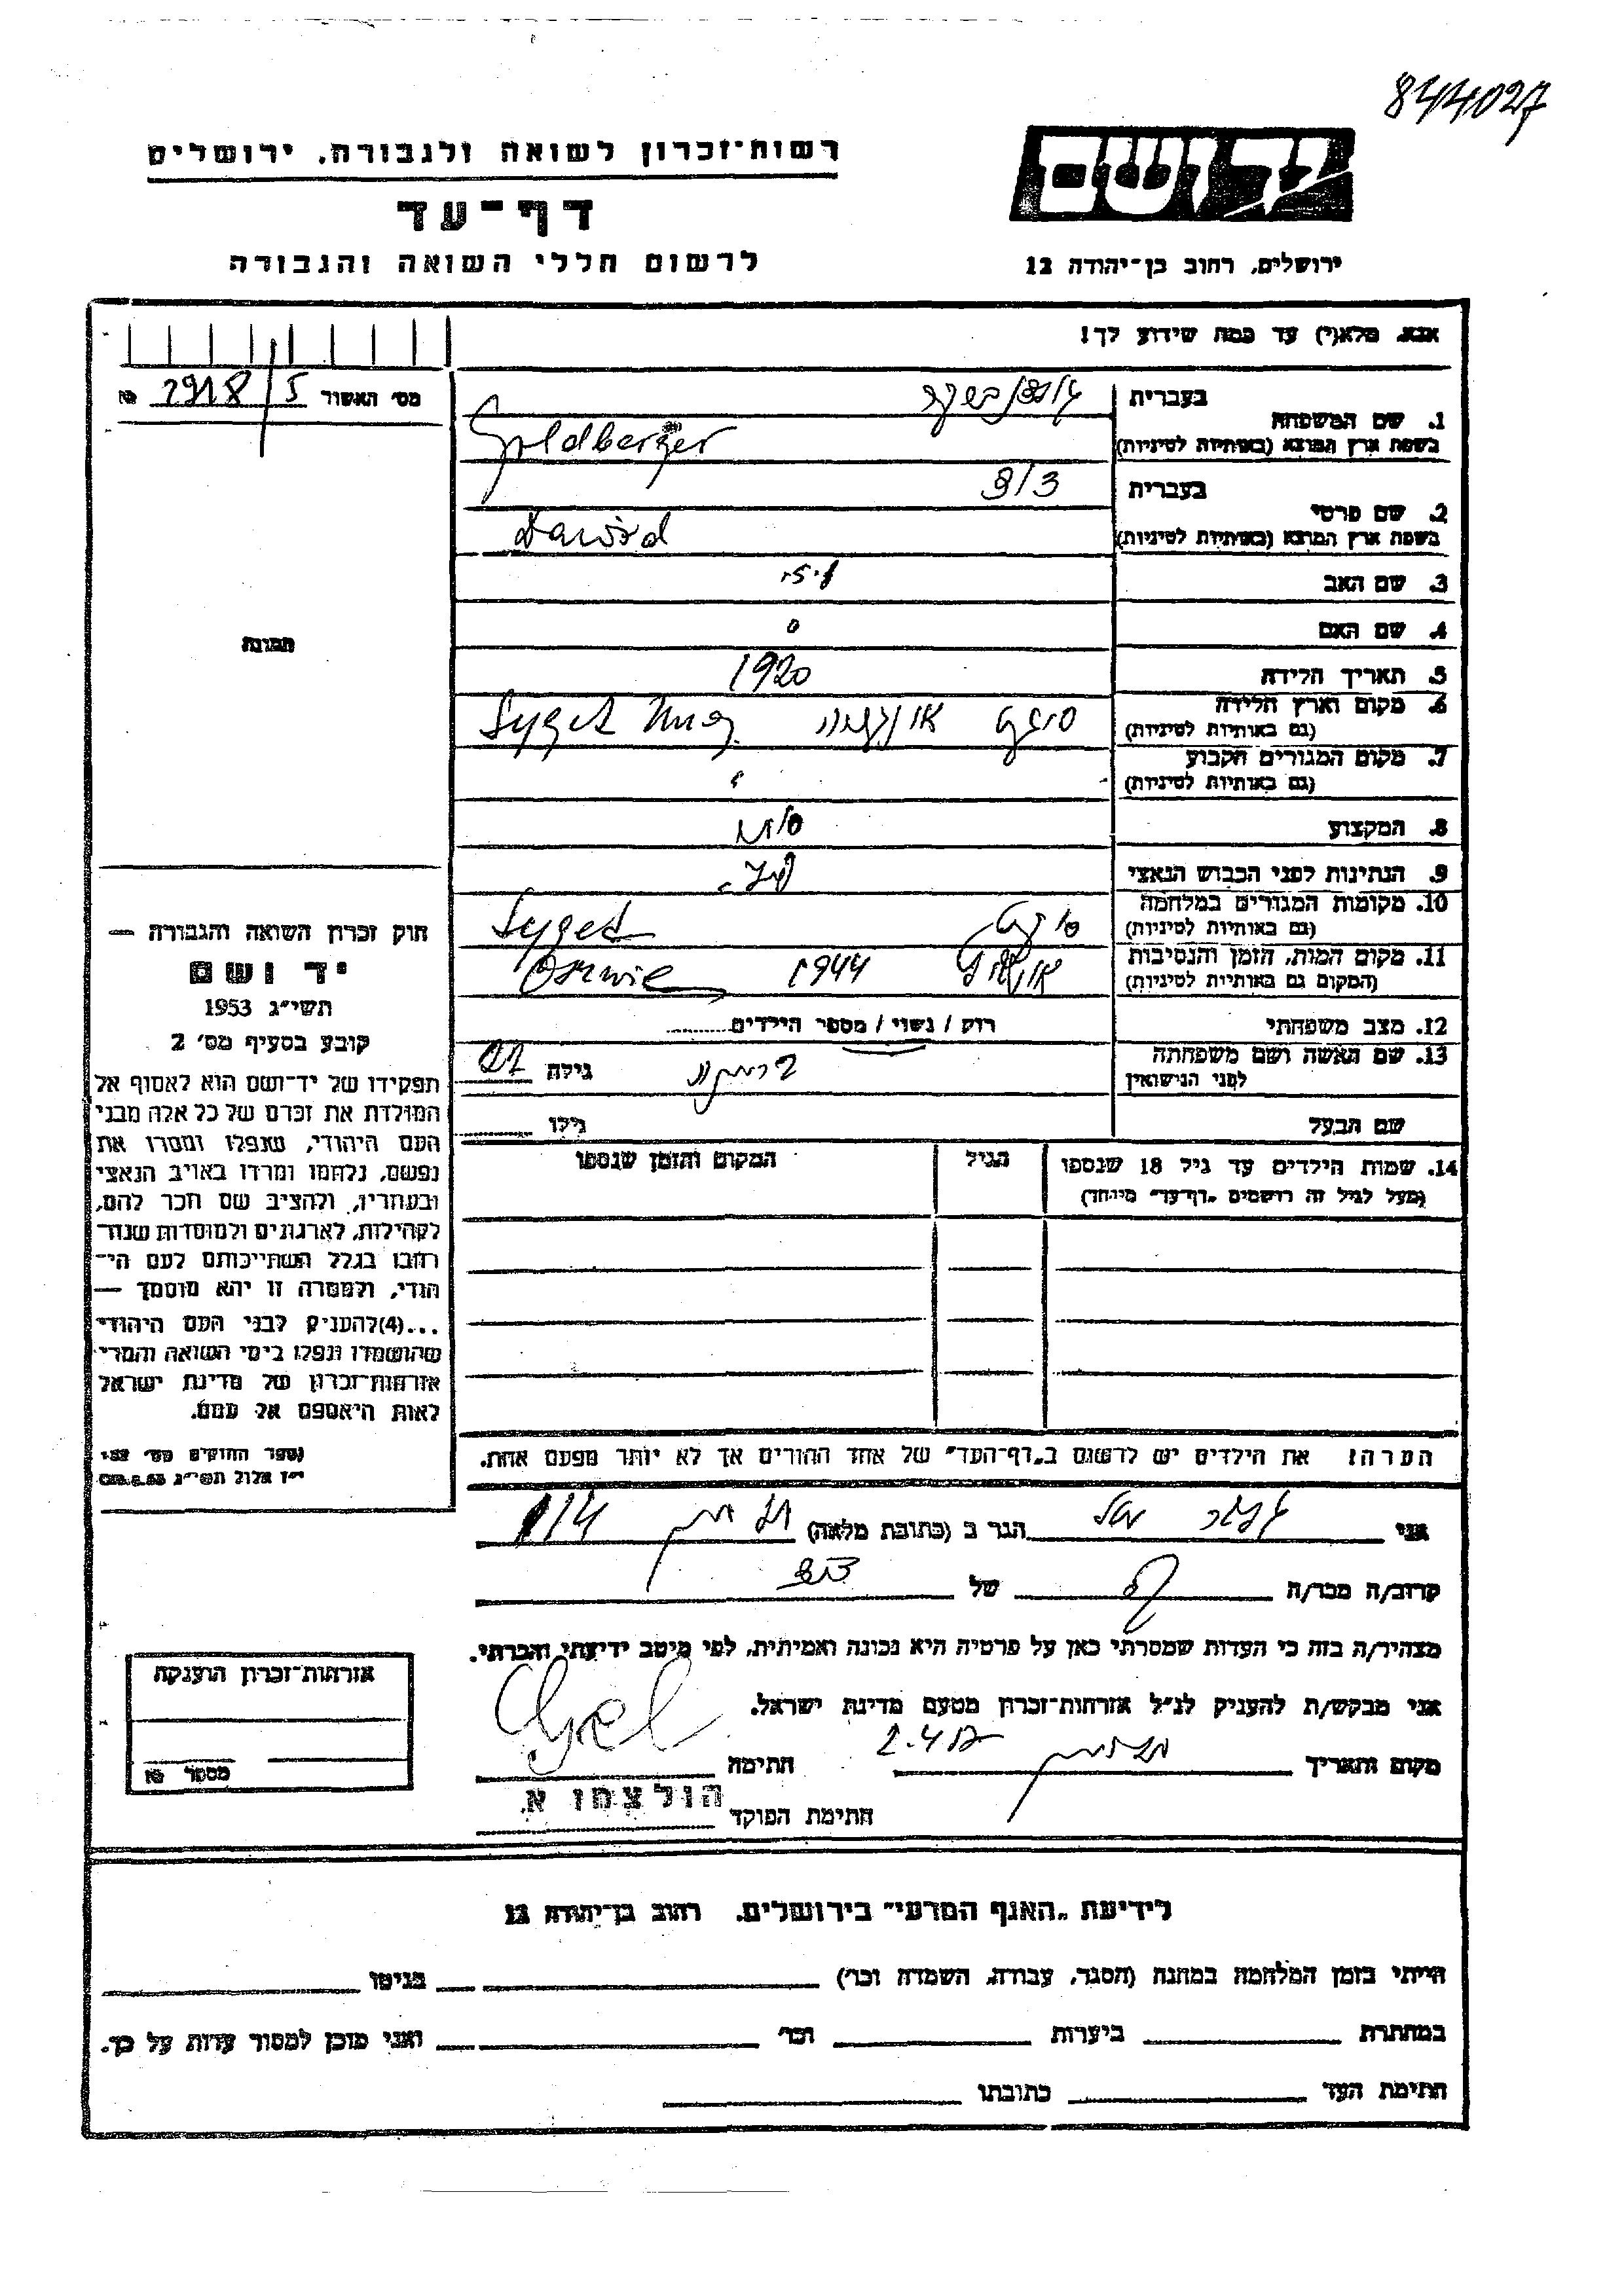 844027
רשות־זכרון לשואה ולגבורה, ירושלים
דף־עד
לרשום חללי השואה והגבורה
יד ושם
ירושלים, רחוב בן־יהודה 12
אנא, מלא(י) עד כמה שידוע לך!
מס׳ האשור 2918/5
תמונה
בעברית
1. שם המשפחה
בשפת ארץ המוצא (באותיות לטיניות) Goldberger
בעברית דוד
2. שם פרטי
בשפת ארץ המוצא (באותיות לטיניות) Dawid
3. שם האב
4. שם האם
5. תאריך הלידה 1920
6. מקום וארץ הלידה סיגט Syget
(גם באותיות לטיניות)
7. מקום המגורים הקבוע ?
(גם באותיות לטיניות)
8. המקצוע
9. הנתינות לפני הכבוש הנאצי
10. מקומות המגורים במלחמה סיגט Syged
(גם באותיות לטיניות)
11. מקום המות, הזמן והנסיבות 1944
(המקום גם באותיות לטיניות)
12. מצב משפחתי רווק / נשוי / מספר הילדים
13. שם האשה ושם משפחתה גילה 22
לפני הנישואין
שם הבעל גילו
14. שמות הילדים עד גיל 18 שנספו הגיל המקום והזמן שנספו
(מעל לגיל זה רושמים „דף־עד״ מיוחד)
הערה: את הילדים יש לרשום ב„דף־העד״ של אחד ההורים אך לא יותר מפעם אחת.
חוק זכרון השואה והגבורה —
יד ושם
תשי״ג 1953
קובע בסעיף מס׳ 2
תפקידו של יד־ושם הוא לאסוף אל
המולדת את זכרם של כל אלה מבני
העם היהודי, שנפלו ומסרו את
נפשם, נלחמו ומרדו באויב הנאצי
ובעוזריו, ולהציב שם וזכר להם,
לקהילות, לארגונים ולמוסדות שנח־
רבו בגלל השתייכותם לעם הי־
הודי, ולמטרה זו יהא מוסמך —
...(4) להעניק לבני העם היהודי
שהושמדו ונפלו בימי השואה והמרי
אזרחות־זכרון של מדינת ישראל
לאות היאספם אל עמם.
(ספר החוקים מס׳ 132
י״ז אלול תשי״ג 28.8.53)
אני הגר ב (כתובת מלאה)
קרוב/ה מכר/ה של
מצהיר/ה בזה כי העדות שמסרתי כאן על פרטיה היא נכונה ואמיתית, לפי מיטב ידיעתי והכרתי.
אני מבקש/ת להעניק לנ״ל אזרחות־זכרון מטעם מדינת ישראל.
מקום ותאריך חתימה
חתימת הפוקד הולצמן א.
אזרחות־זכרון הוענקה
מספר
לידיעת „האגף המדעי״ בירושלים, רחוב בן־יהודה 12
הייתי בזמן המלחמה במחנה (הסגר, עבודה, השמדה וכו׳) בגיטו
במחתרת ביערות וכו׳ ואני מוכן למסור עדות על כך.
חתימת העד כתובתו